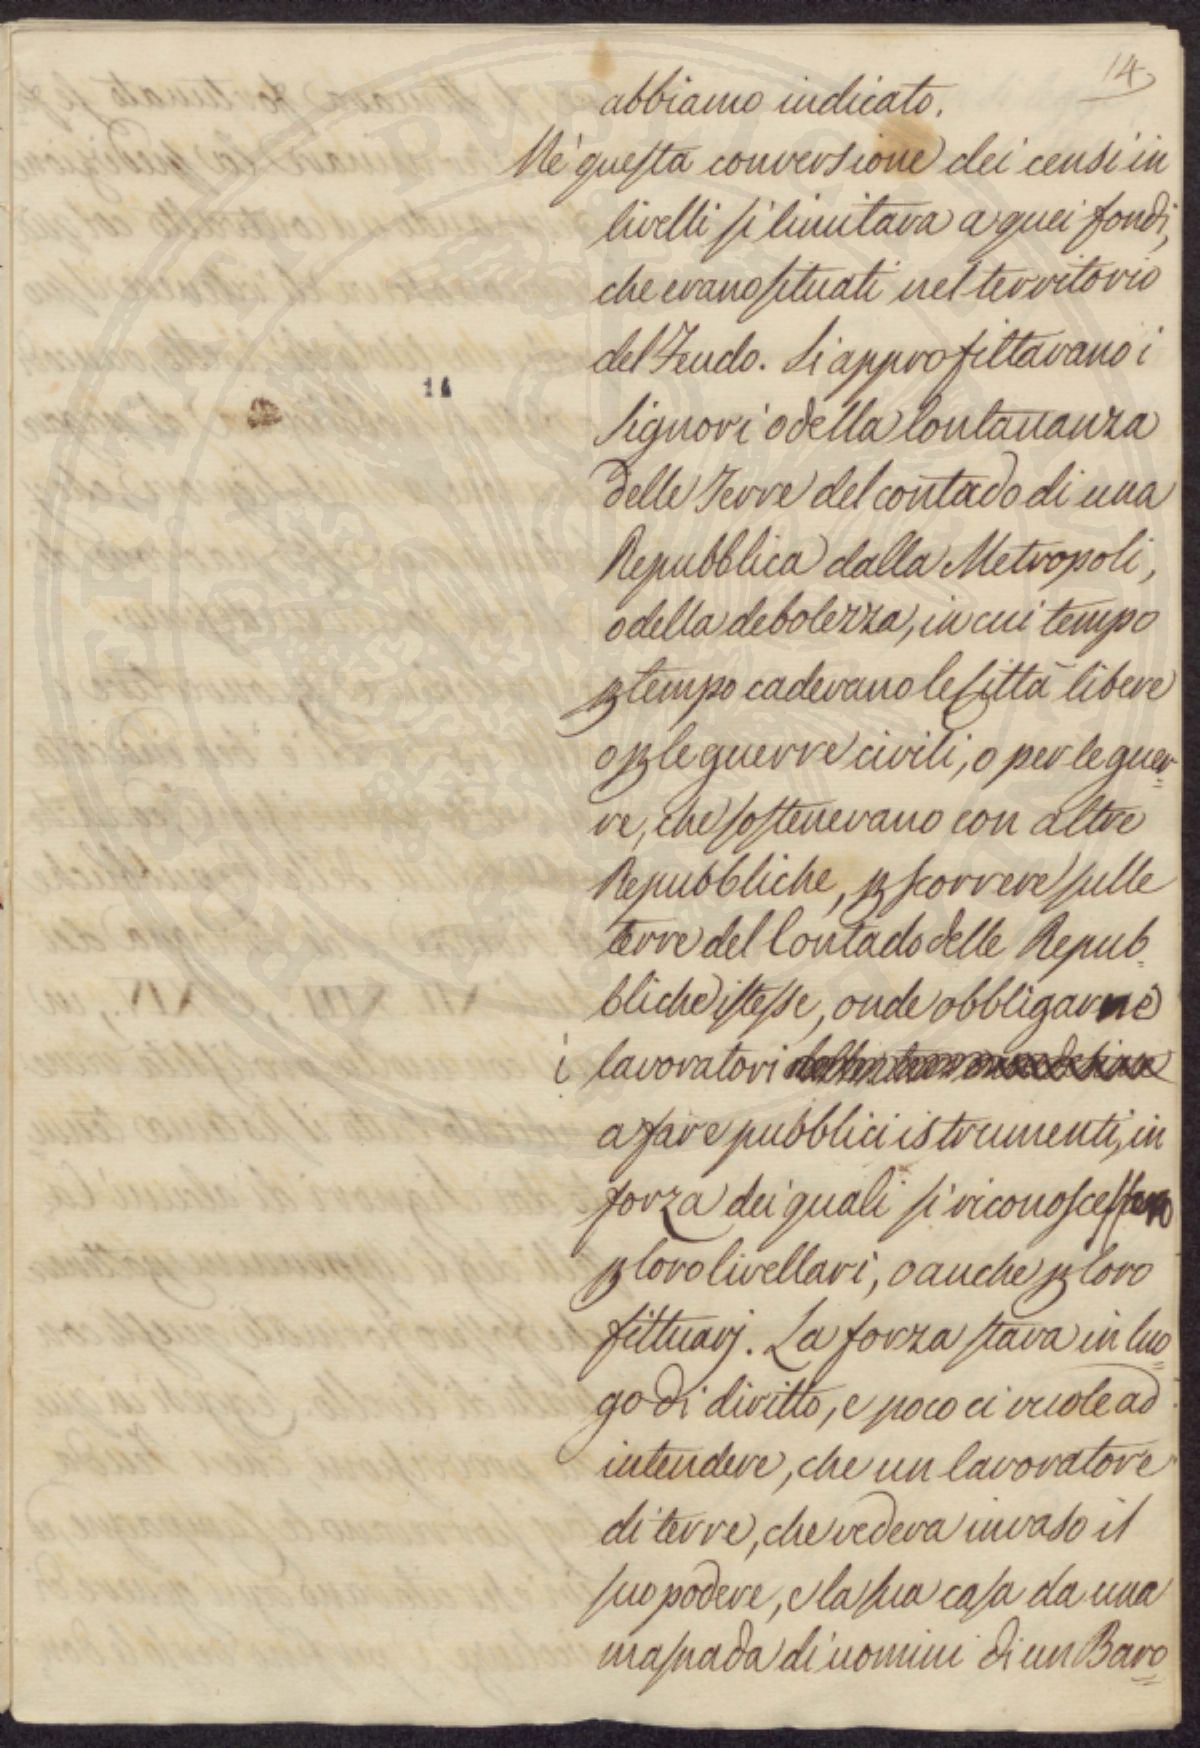 14
abbiamo indicato.
Nè questa conversione dei censi in
livelli si limitava a quei fondi,
che erano situati nel territorio
del Feudo. Si approfittavano i
Signori o della lontananza
delle Terre del contado di una
Repubblica dalla Metropoli,
o della debolezza, in cui tempo
p tempo cadevano le Città libere
o p le guerre civili, o per le guer-
re, che sostenevano con altre
Repubbliche, p scorrere sulle
terre del Contado delle Repub-
bliche istesse, onde obbligarne
i lavoratori
a fare pubblici istrumenti, in
forza dei quali si riconoscessero
p loro livellari, o anche p loro
fittuarj. La forza stava in luo-
go di diritto, e poco ci vuole ad
intendere, che un lavoratore
di terre, che vedeva invaso il
suo podere, e la sua casa da una
masnada di uomini di un Baro-
14